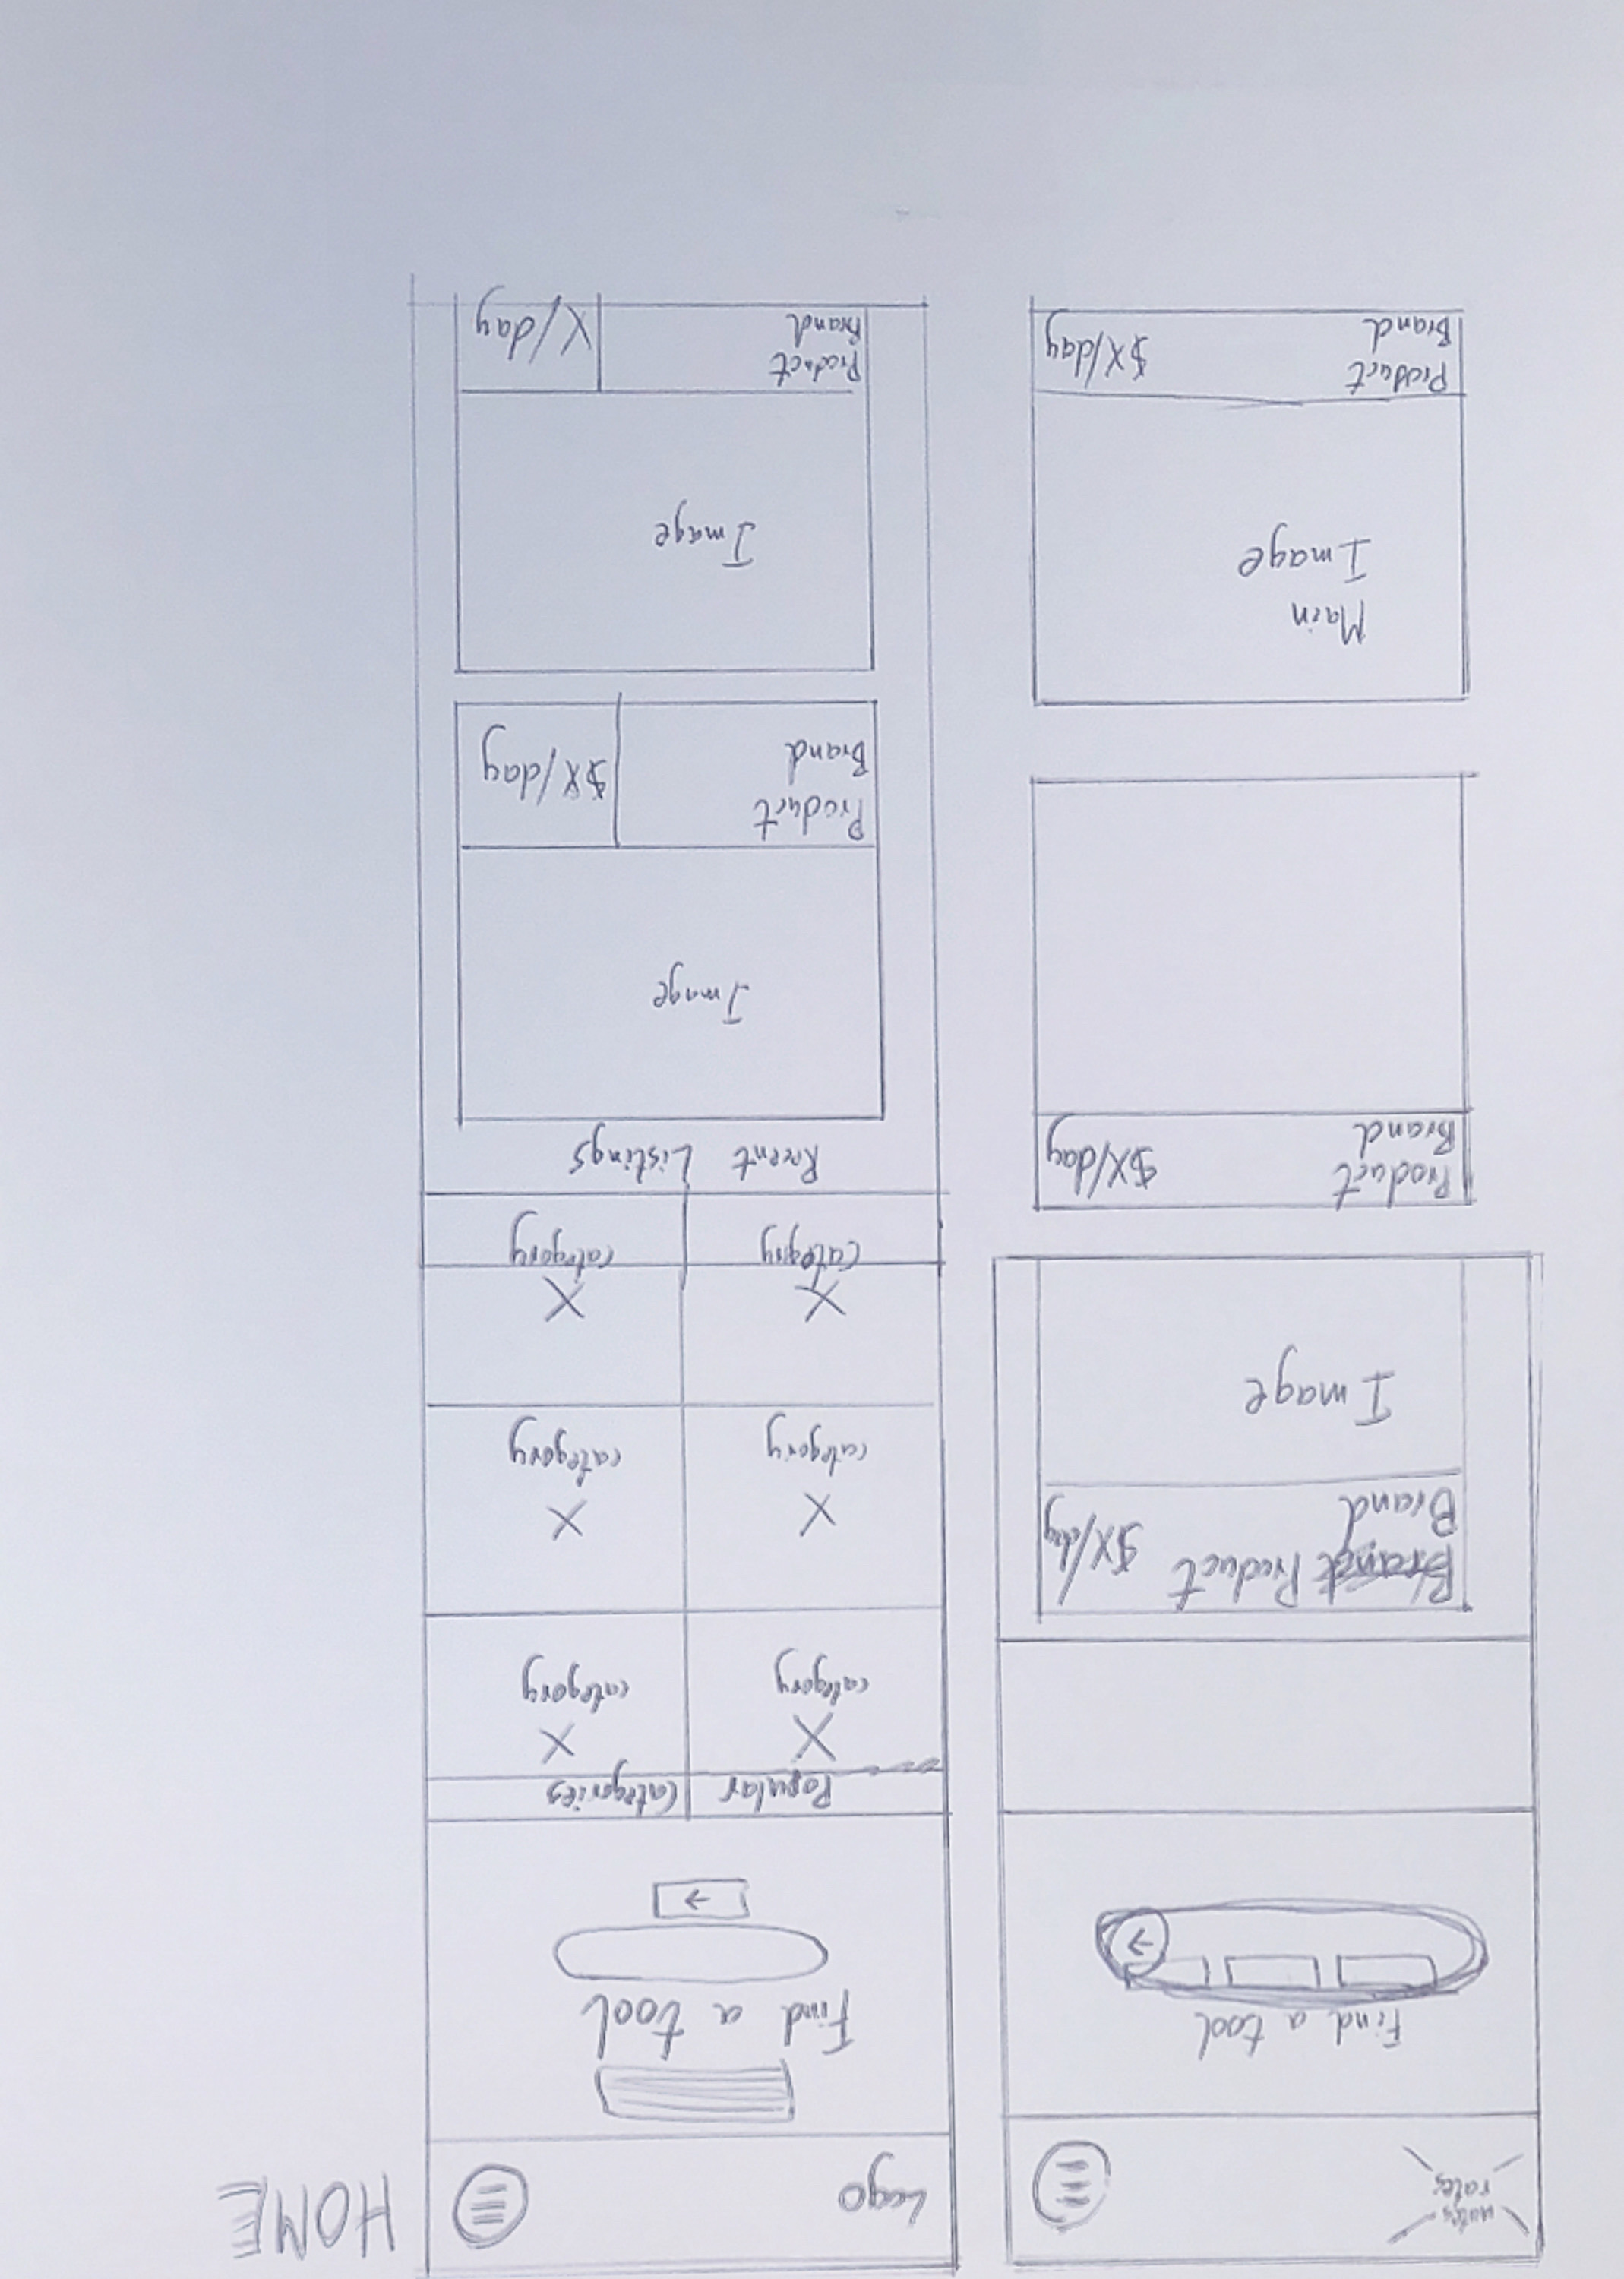 mates
rates
Find a tool
→
Brand Product
Brand
$X/day
Image
Product
Brand
$X/day
Main
Image
Product
Brand
$X/day
HOME
Logo
Find a tool
→
Popular Categories
X
category
X
category
X
category
X
category
X
category
X
category
Recent Listings
Image
Product
Brand
$X/day
Image
Product
Brand
X/day